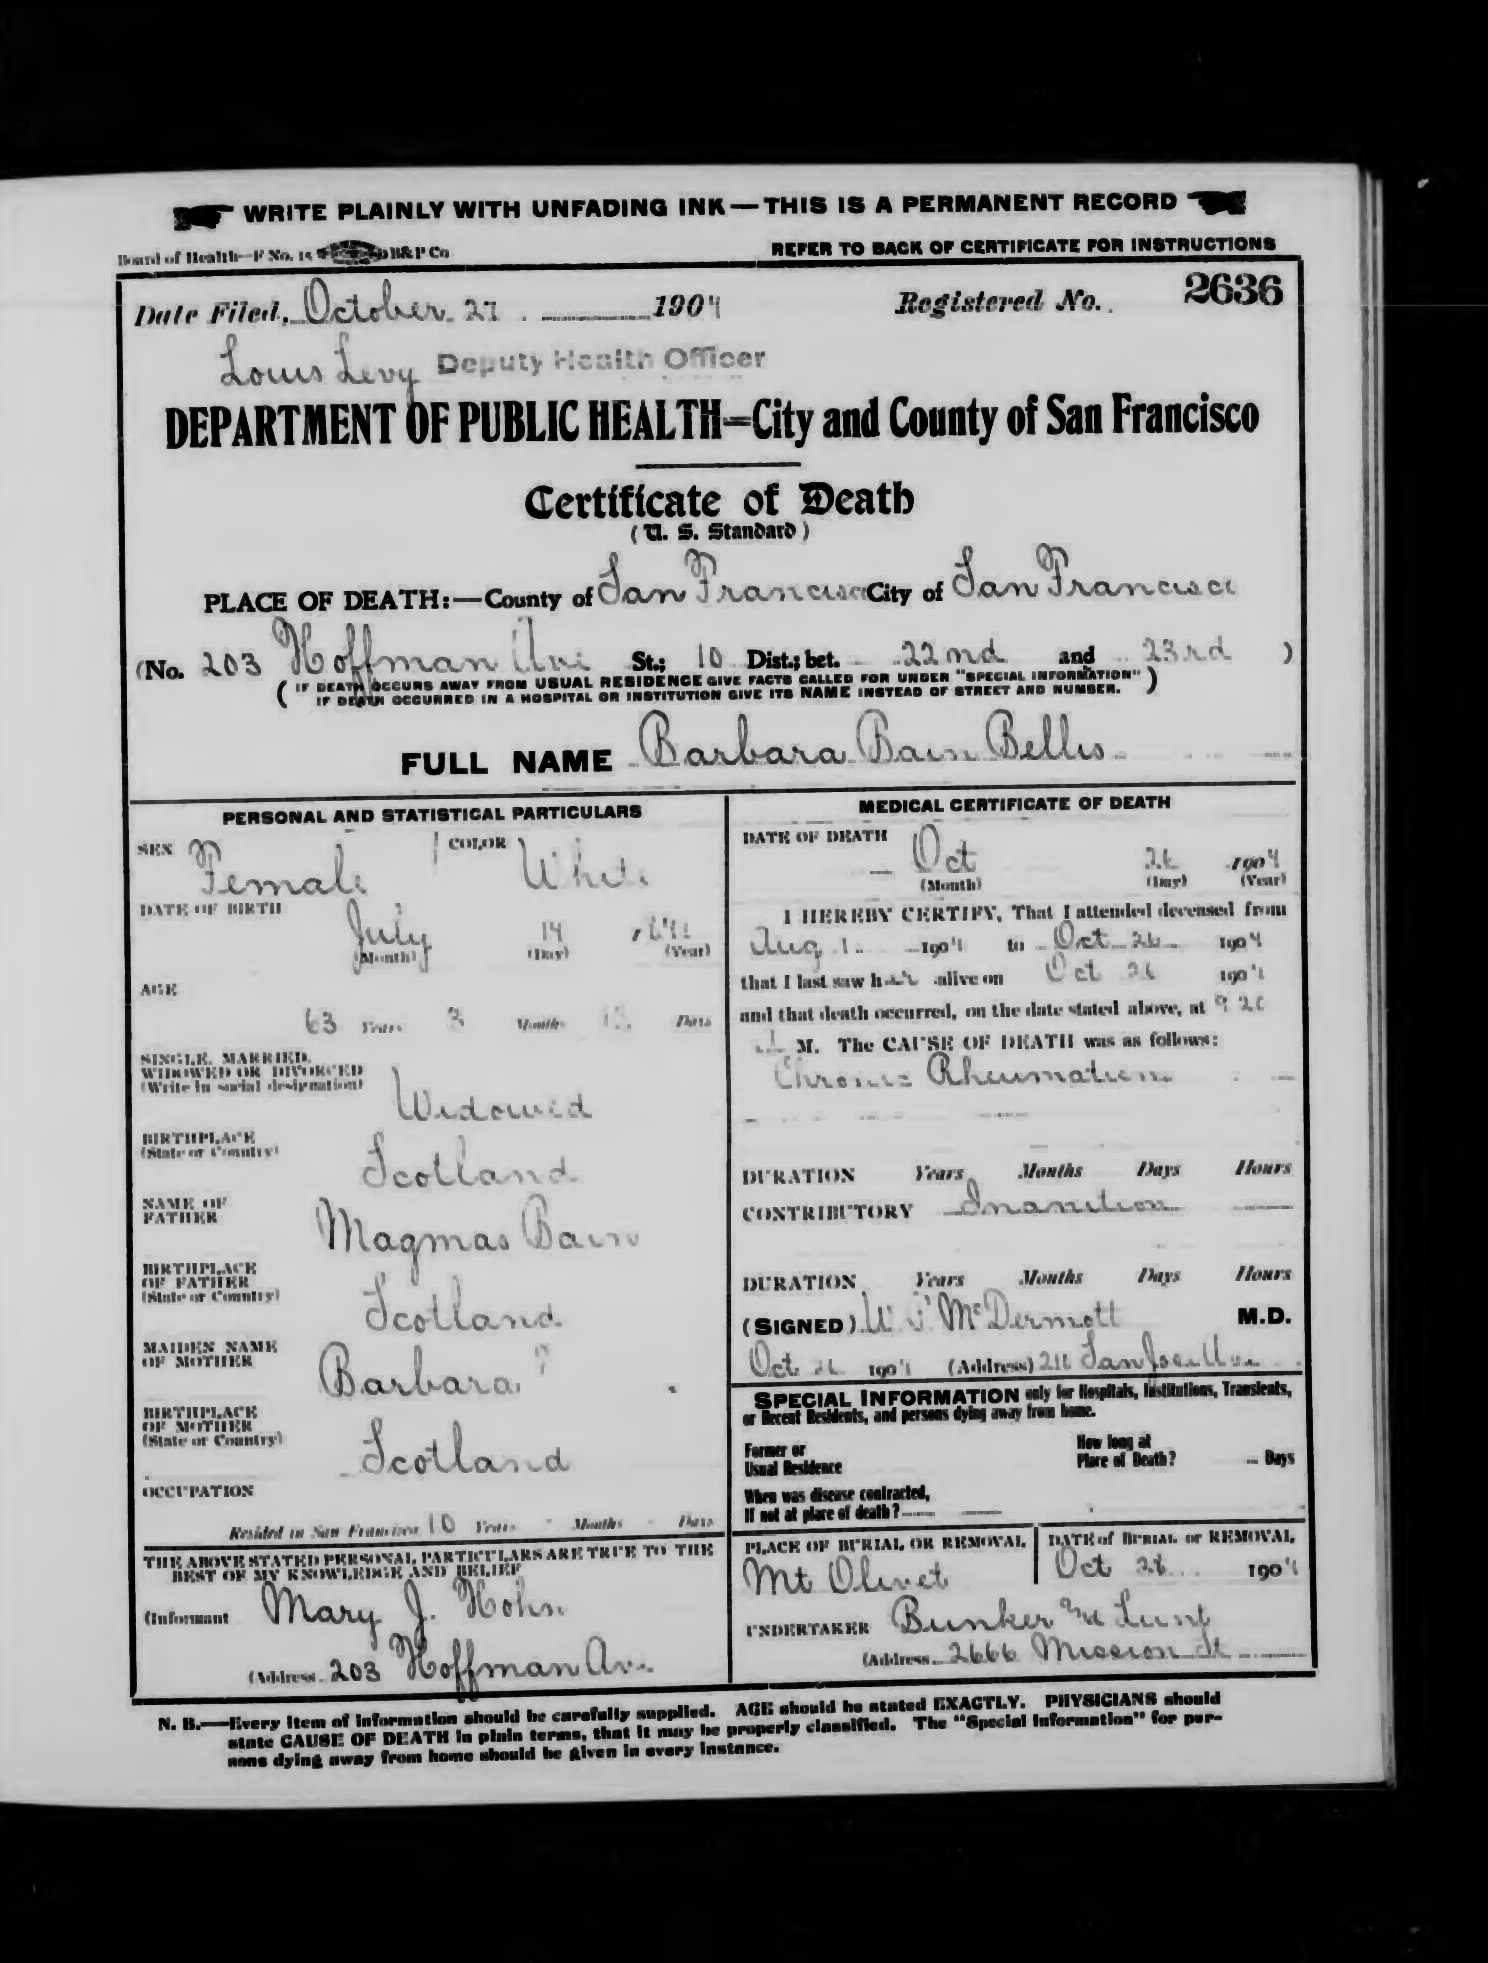 WRITE PLAINLY WITH UNFADING INK—THIS IS A PERMANENT RECORD
Board of Health—F No. 15 B&P Co
REFER TO BACK OF CERTIFICATE FOR INSTRUCTIONS
Date Filed, October 27 1904
Registered No. 2636
Louis Levy Deputy Health Officer
DEPARTMENT OF PUBLIC HEALTH=City and County of San Francisco
Certificate of Death
(U. S. Standard)
PLACE OF DEATH:—County of San Francisco City of San Francisco
(No. 203 Hoffman Ave St.; 10 Dist.; bet. 22nd and 23rd )
( IF DEATH OCCURS AWAY FROM USUAL RESIDENCE GIVE FACTS CALLED FOR UNDER "SPECIAL INFORMATION" )
IF DEATH OCCURRED IN A HOSPITAL OR INSTITUTION GIVE ITS NAME INSTEAD OF STREET AND NUMBER.
FULL NAME Barbara Bain Bellis
PERSONAL AND STATISTICAL PARTICULARS
SEX Female COLOR White
DATE OF BIRTH
July 14 1841
(Month) (Day) (Year)
AGE
63 Years 3 Months 12 Days
SINGLE, MARRIED,
WIDOWED OR DIVORCED
(Write in social designation)
Widowed
BIRTHPLACE
(State or Country)
Scotland
NAME OF
FATHER
Magmas Bain
BIRTHPLACE
OF FATHER
(State or Country)
Scotland
MAIDEN NAME
OF MOTHER
Barbara ?
BIRTHPLACE
OF MOTHER
(State or Country)
Scotland
OCCUPATION
Resided in San Francisco 10 Years - Months - Days
THE ABOVE STATED PERSONAL PARTICULARS ARE TRUE TO THE
BEST OF MY KNOWLEDGE AND BELIEF
(Informant Mary J. Hohn
(Address 203 Hoffman Ave.
MEDICAL CERTIFICATE OF DEATH
DATE OF DEATH
Oct 26 1904
(Month) (Day) (Year)
I HEREBY CERTIFY, That I attended deceased from
Aug 1 1904 to Oct 26 1904
that I last saw her alive on Oct 26 1904
and that death occurred, on the date stated above, at 9 20
M. The CAUSE OF DEATH was as follows:
Chronic Rheumatism
DURATION Years Months Days Hours
CONTRIBUTORY Inanition
DURATION Years Months Days Hours
(SIGNED) W. McDermott M.D.
Oct 26 1904 (Address) San Jose Ave
SPECIAL INFORMATION only for Hospitals, Institutions, Transients,
or Recent Residents, and persons dying away from home.
Former or
Usual Residence
How long at
Place of Death? Days
When was disease contracted,
If not at place of death?
PLACE OF BURIAL OR REMOVAL
Mt Olivet
DATE of BURIAL or REMOVAL
Oct 28 1904
UNDERTAKER Bunker and Lunt
(Address 2666 Mission St
N. B.—Every item of information should be carefully supplied. AGE should be stated EXACTLY. PHYSICIANS should
state CAUSE OF DEATH in plain terms, that it may be properly classified. The "Special Information" for per-
sons dying away from home should be given in every instance.